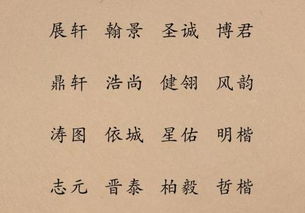 展轩 翰景 圣诚 博君
鼎轩 浩尚 健翎 风韵
涛图 依城 星佑 明楷
志元 晋泰 柏毅 哲楷